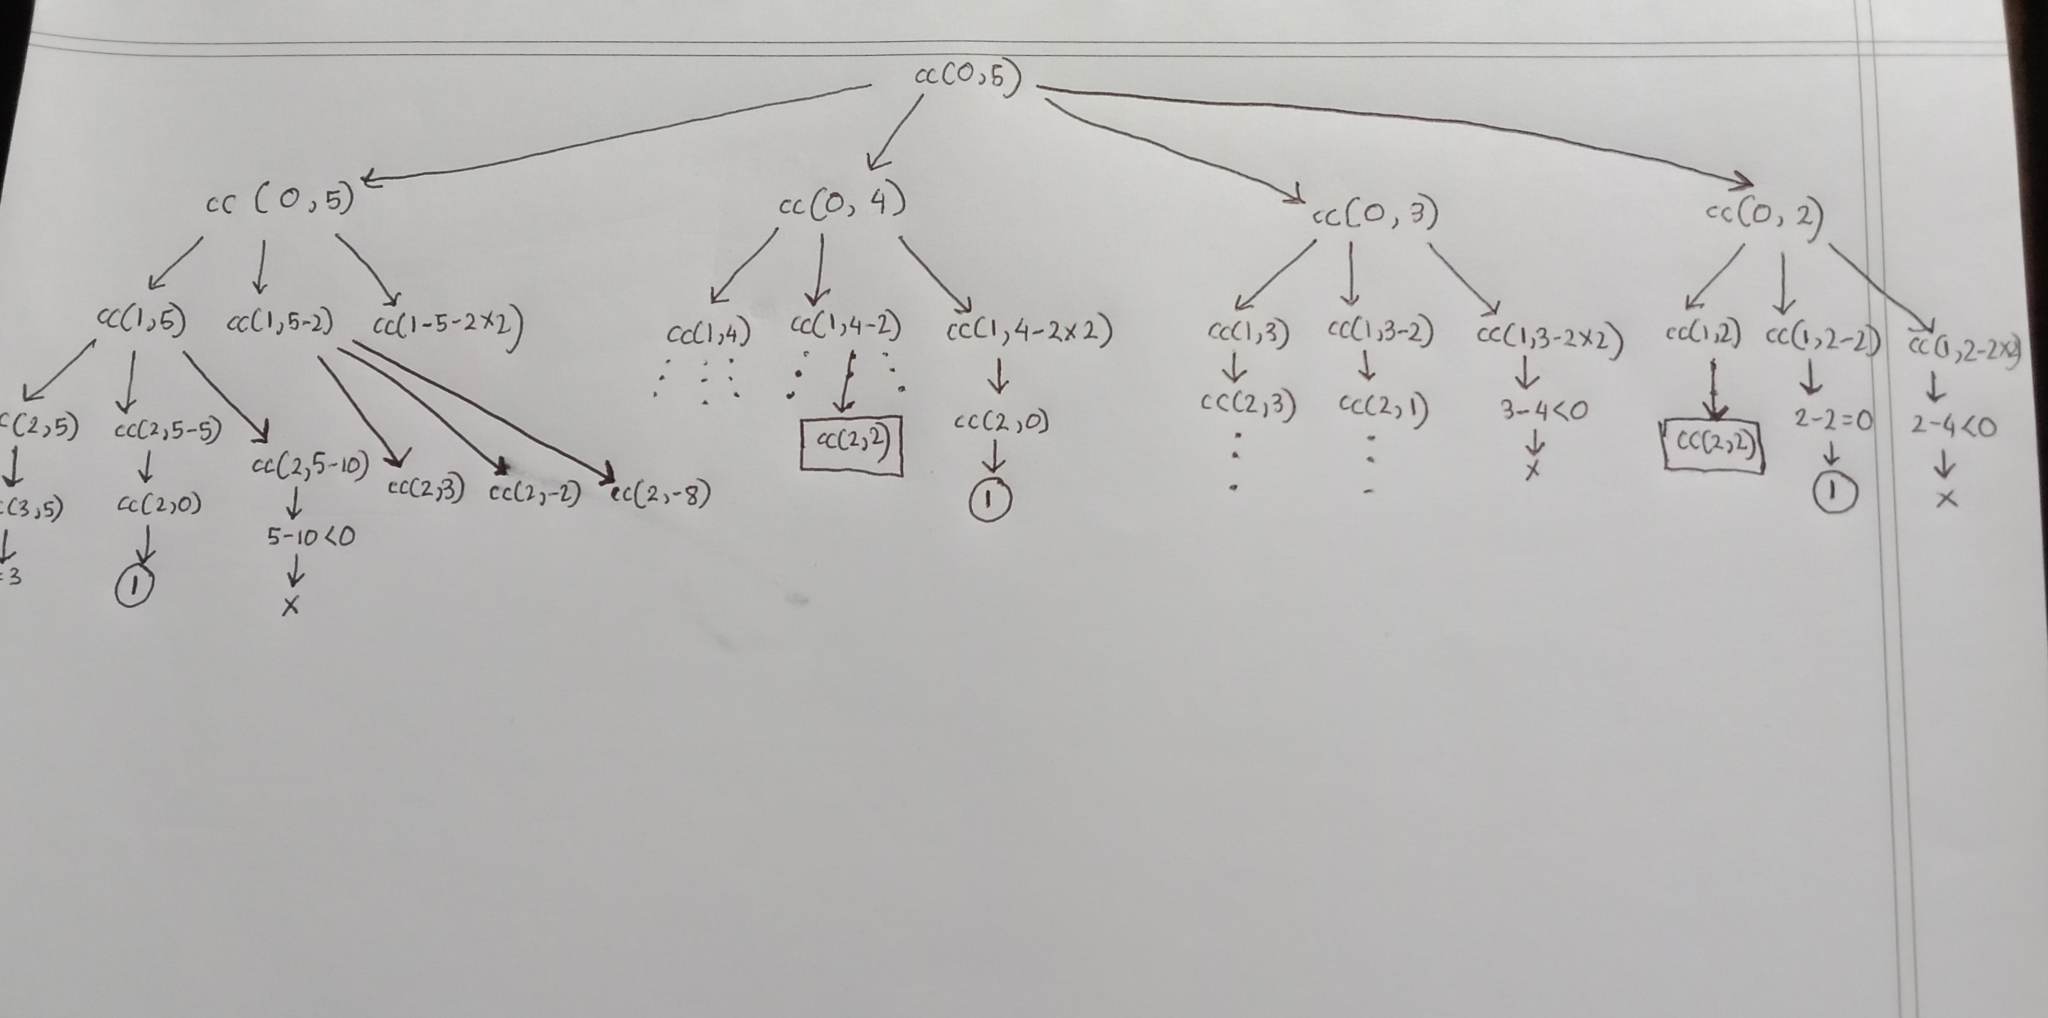 cc(0,5)
cc (0,5) cc(0, 4) cc(0, 3) cc(0, 2)
cc(1,5) cc(1,5-2) cc(1-5-2×2) cc(1,4) cc(1,4-2) cc(1,4-2×2) cc(1,3) cc(1,3-2) cc(1,3-2×2) cc(1,2) cc(1,2-2) cc(1,2-2×2)
c(2,5) cc(2,5-5) cc(2,5-10) cc(2,3) cc(2,-2) cc(2,-8) cc(2,2) cc(2,0) cc(2,3) cc(2,1) 3-4<0 cc(2,2) 2-2=0 2-4<0
c(3,5) cc(2,0) 5-10<0 1 x 1 x
=3 1 x